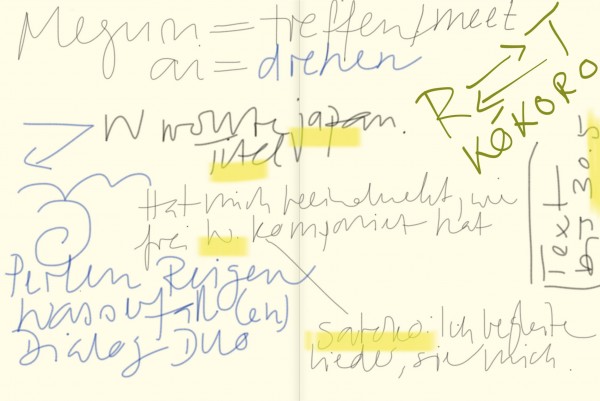 Meguri = treffen/meet
ai = drehen
R T
KOKORO
W wollte japan.
Titel
Hat mich beeindruckt, wie
frei W. komponiert hat
Text
bis 30.5
Perlen Reigen
Wasserfall(en)
Dialog Duo
Satoko: Ich begleite
Lieder, sie mich.